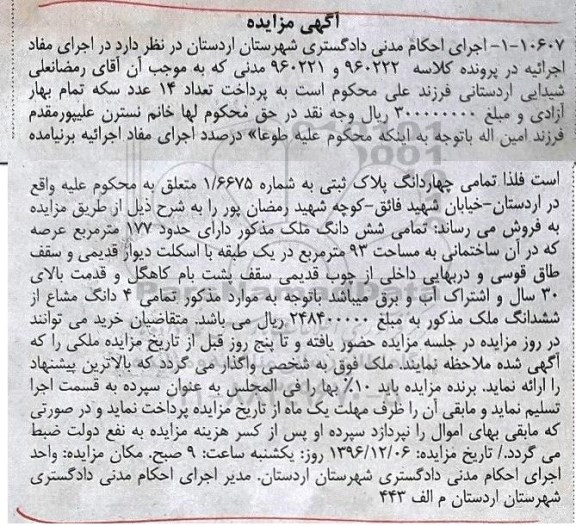 آگهی مزایده
۱-۱۰۶۰۷-۱- اجرای احکام مدنی دادگستری شهرستان اردستان در نظر دارد در اجرای مفاد
اجرائیه در پرونده کلاسه ۹۶۰۲۲۲ و ۹۶۰۲۲۱ مدنی که به موجب آن آقای رمضانعلی
شیدایی اردستانی فرزند علی محکوم است به پرداخت تعداد ۱۴ عدد سکه تمام بهار
آزادی و مبلغ ۳۰۰۰۰۰۰۰۰ ریال وجه نقد در حق محکوم لها خانم نسترن علیپورمقدم
فرزند امین اله باتوجه به اینکه محکوم علیه طوعا» درصدد اجرای مفاد اجرائیه برنیامده
است فلذا تمامی چهاردانگ پلاک ثبتی به شماره ۱/۶۶۷۵ متعلق به محکوم علیه واقع
در اردستان-خیابان شهید فائق-کوچه شهید رمضان پور را به شرح ذیل از طریق مزایده
به فروش می رساند: تمامی شش دانگ ملک مذکور دارای حدود ۱۷۷ مترمربع عرصه
که در آن ساختمانی به مساحت ۹۳ مترمربع در یک طبقه با اسکلت دیوار قدیمی و سقف
طاق قوسی و دربهایی داخلی از چوب قدیمی سقف پشت بام کاهگل و قدمت بالای
۳۰ سال و اشتراک آب و برق میباشد باتوجه به موارد مذکور تمامی ۴ دانگ مشاع از
ششدانگ ملک مذکور به مبلغ ۲۴۸۴۰۰۰۰۰ ریال می باشد. متقاضیان خرید می توانند
در روز مزایده در جلسه مزایده حضور یافته و تا پنج روز قبل از تاریخ مزایده ملکی را که
آگهی شده ملاحظه نمایند. ملک فوق به شخصی واگذار می گردد که بالاترین پیشنهاد
را ارائه نماید. برنده مزایده باید ۱۰٪ بها را فی المجلس به عنوان سپرده به قسمت اجرا
تسلیم نماید و مابقی آن را ظرف مهلت یک ماه از تاریخ مزایده پرداخت نماید و در صورتی
که مابقی بهای اموال را نپردازد سپرده او پس از کسر هزینه مزایده به نفع دولت ضبط
می گردد./ تاریخ مزایده: ۱۳۹۶/۱۲/۰۶ روز: یکشنبه ساعت: ۹ صبح. مکان مزایده: واحد
اجرای احکام مدنی دادگستری شهرستان اردستان. مدیر اجرای احکام مدنی دادگستری
شهرستان اردستان م الف ۴۴۳